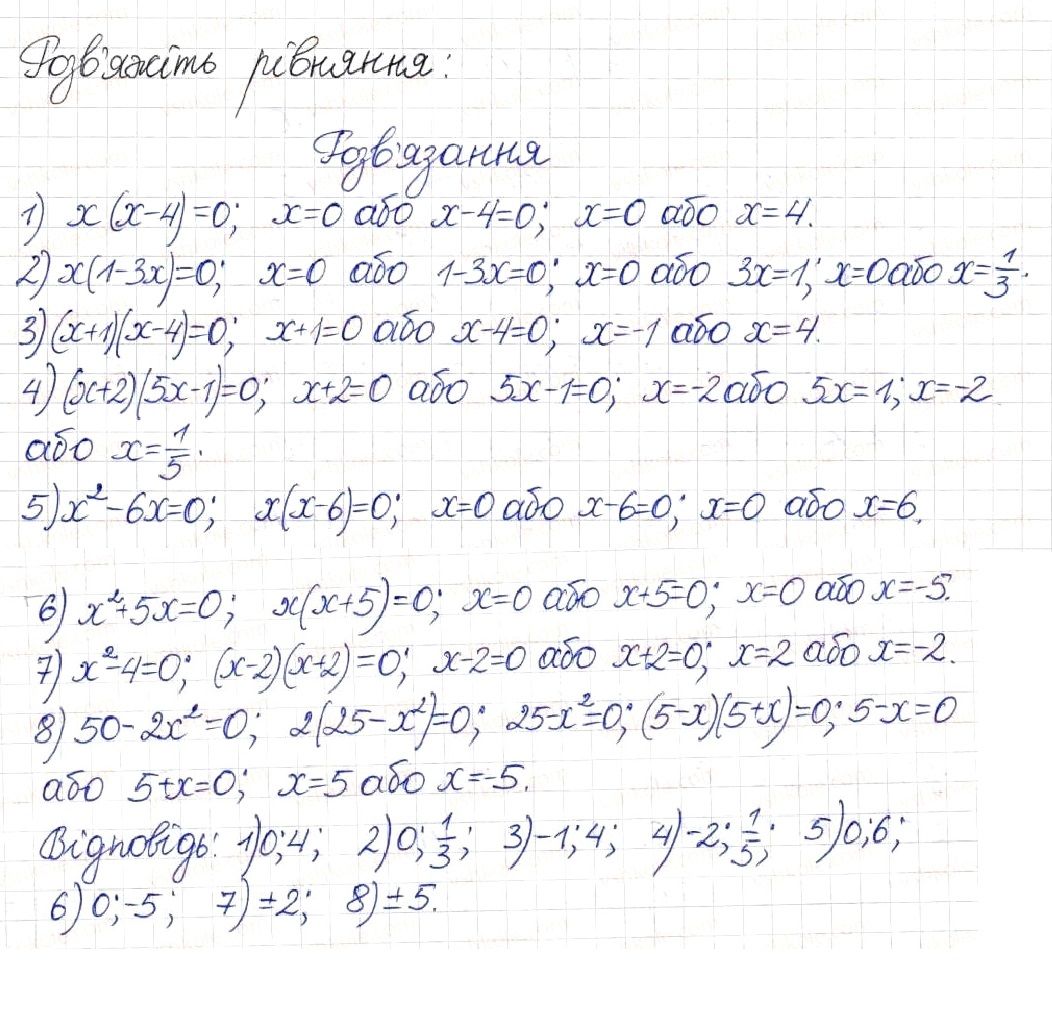 Розв'яжіть рівняння:
Розв'язання
1) x(x-4)=0; x=0 або x-4=0; x=0 або x=4.
2) x(1-3x)=0; x=0 або 1-3x=0; x=0 або 3x=1; x=0 або x=1/3.
3) (x+1)(x-4)=0; x+1=0 або x-4=0; x=-1 або x=4.
4) (x+2)(5x-1)=0; x+2=0 або 5x-1=0; x=-2 або 5x=1; x=-2
або x=1/5.
5) x²-6x=0; x(x-6)=0; x=0 або x-6=0; x=0 або x=6.
6) x²+5x=0; x(x+5)=0; x=0 або x+5=0; x=0 або x=-5.
7) x²-4=0; (x-2)(x+2)=0; x-2=0 або x+2=0; x=2 або x=-2.
8) 50-2x²=0; 2(25-x²)=0; 25-x²=0; (5-x)(5+x)=0; 5-x=0
або 5+x=0; x=5 або x=-5.
Відповідь: 1) 0; 4; 2) 0; 1/3; 3) -1; 4; 4) -2; 1/5; 5) 0; 6;
6) 0; -5; 7) ±2; 8) ±5.